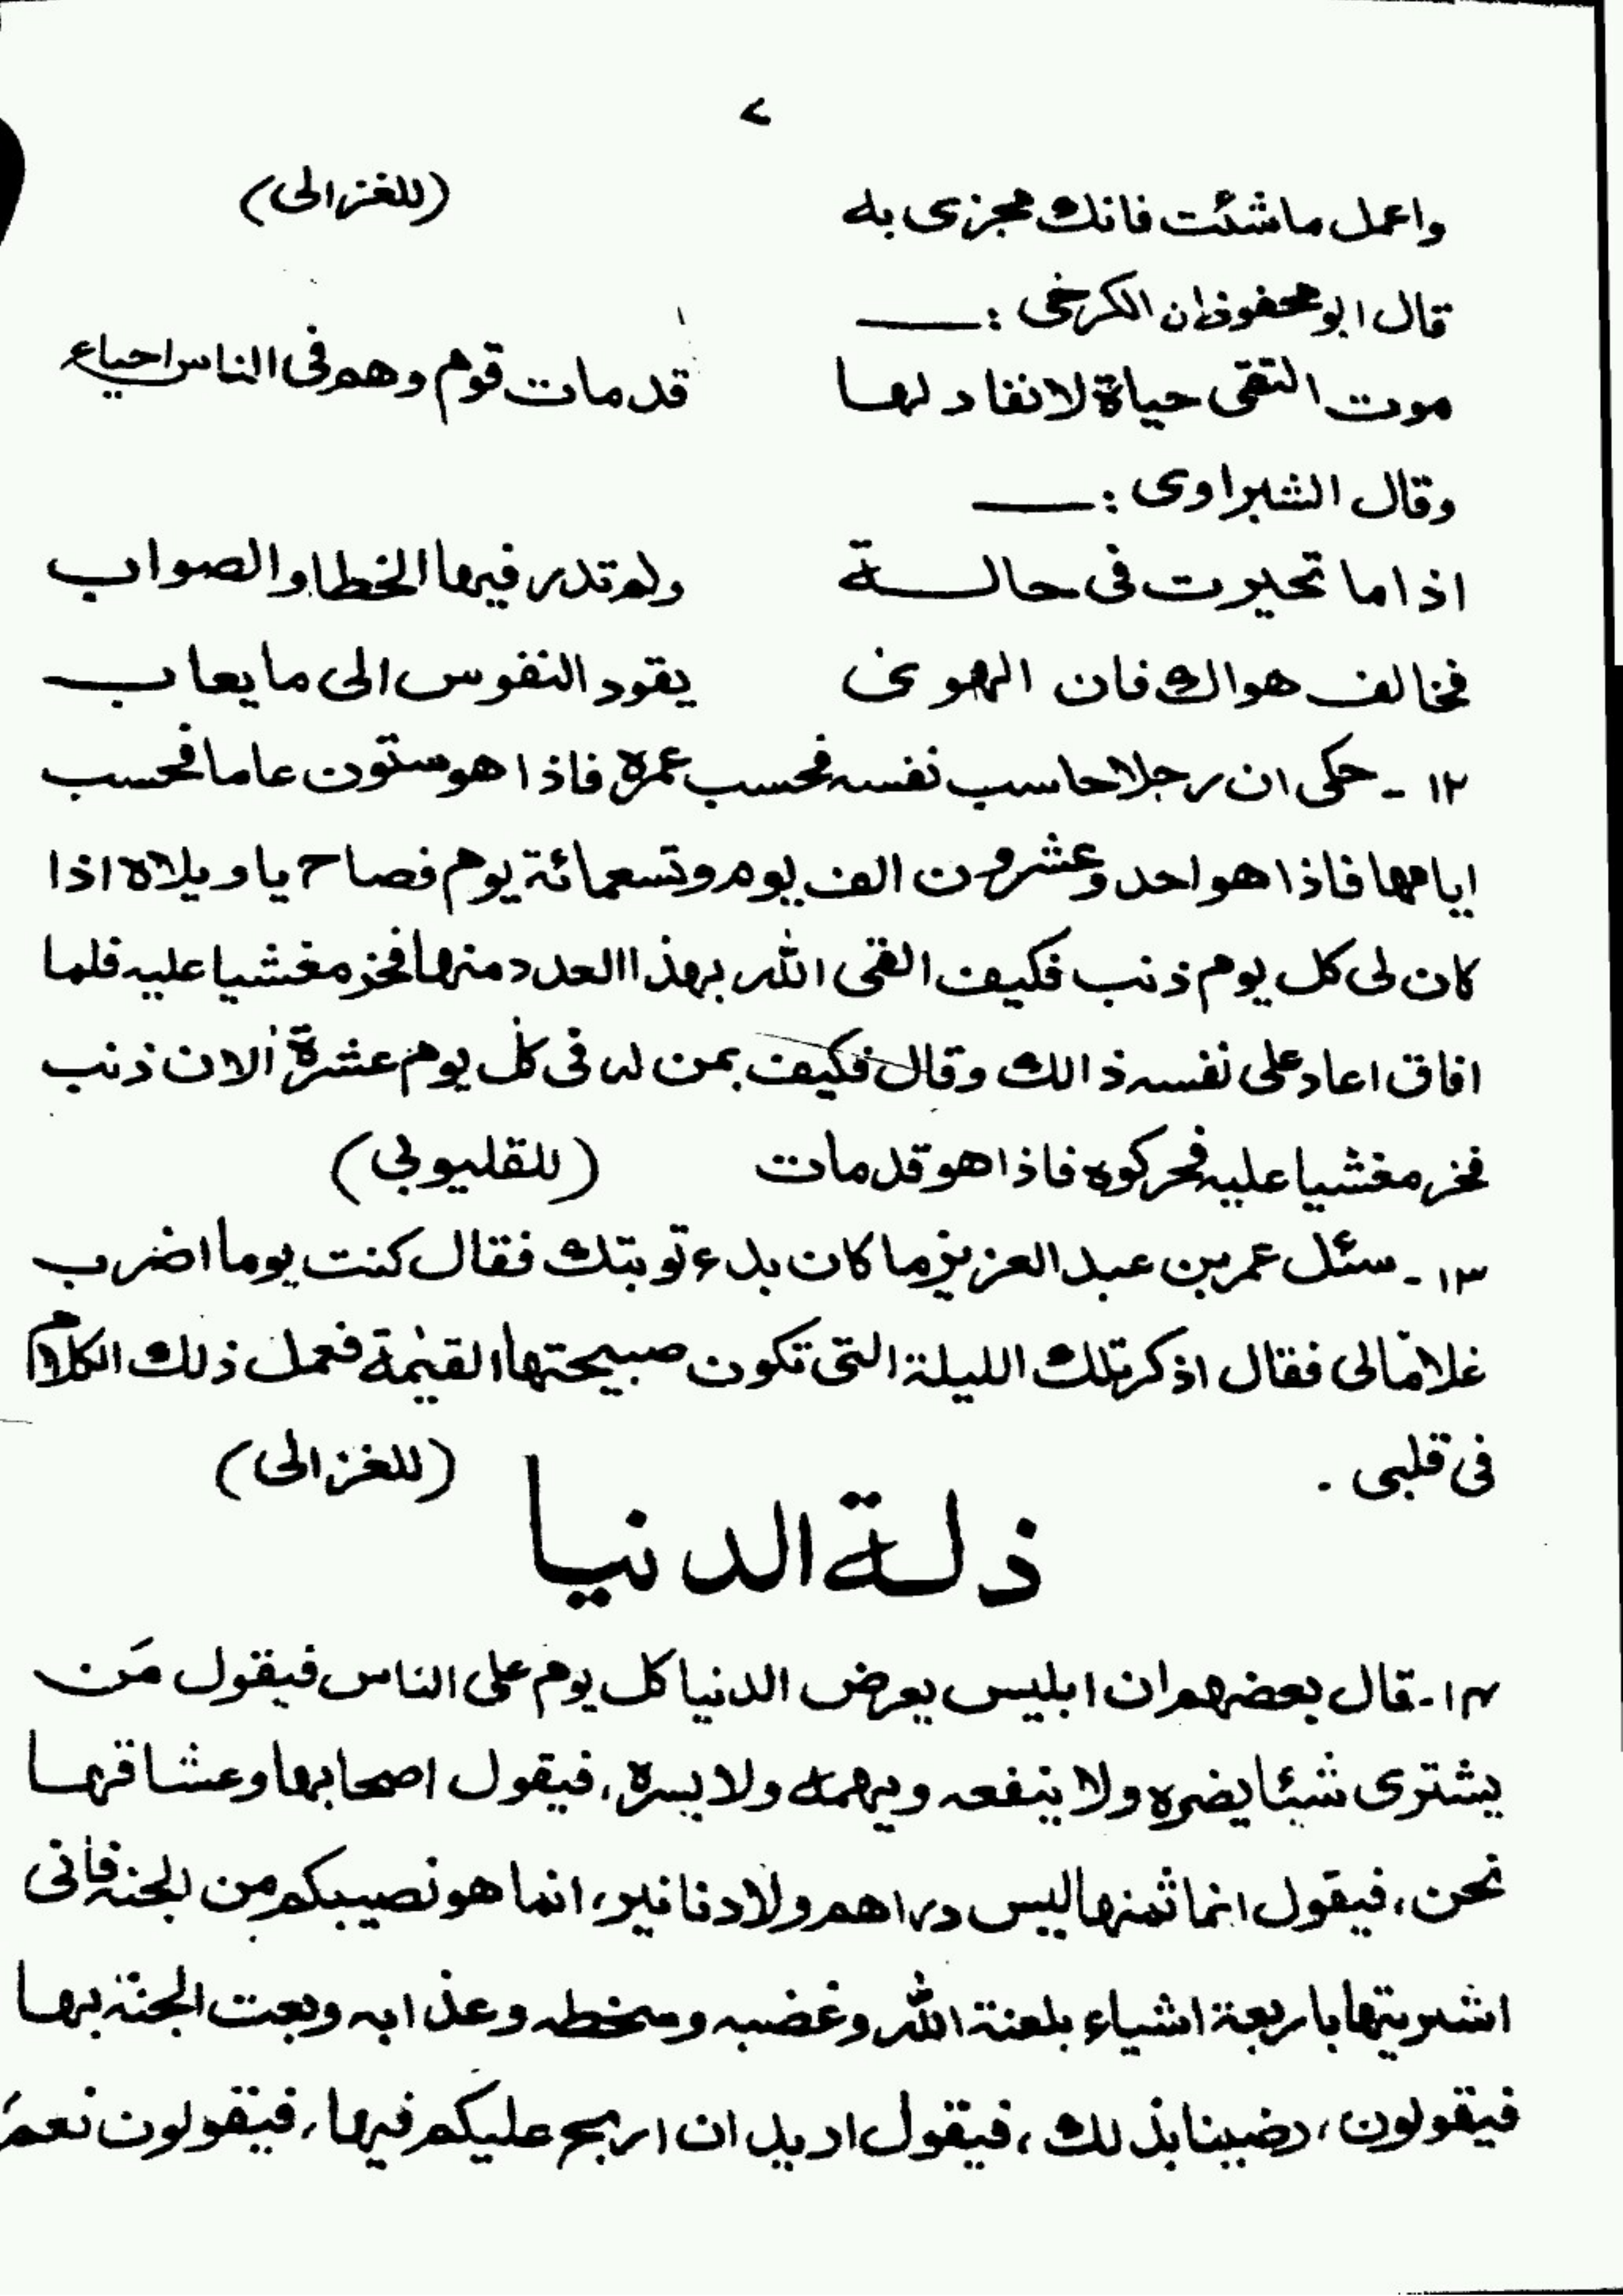 ٧
واعمل ماشئت فانك مجزى به (للغزالى)
قال ابو محفوظ ان الكرخى :
موت التقى حياة لا نفاد لها قد مات قوم وهم فى الناس احياء
وقال الشبراوى :
اذا ما تحيرت فى حالة ولم تدر فيها الخطا والصواب
فخالف هواك فان الهوى يقود النفوس الى ما يعاب
١٢ - حكى ان رجلا حاسب نفسه فحسب عمره فاذا هو ستون عاما فحسب
ايامها فاذا هو احد وعشرون الف يوم وتسعمائة يوم فصاح ياويلاه اذا
كان لى كل يوم ذنب فكيف القى الله بهذا العدد منها فخر مغشيا عليه فلما
افاق اعاد على نفسه ذالك وقال فكيف بمن له فى كل يوم عشرة الاف ذنب
فخر مغشيا عليه فحركوه فاذا هو قد مات (للقليوبى)
١٣ - سئل عمر بن عبد العزيز ما كان بدء توبتك فقال كنت يوما اضرب
غلاما لى فقال اذكر تلك الليلة التى تكون صبيحتها القيمة فعمل ذلك الكلام
فى قلبى . (للغزالى)
ذلة الدنيا
١٤ - قال بعضهم ان ابليس يعرض الدنيا كل يوم على الناس فيقول مَن
يشترى شئا يضره ولا ينفعه ويهمه ولا يسره، فيقول اصحابها وعشاقها
نحن، فيقول انما ثمنها ليس دراهم ولا دنانير، انما هو نصيبكم من الجنة فانى
اشتريتها باربعة اشياء بلعنة الله وغضبه وسخطه وعذابه وبعت الجنة بها
فيقولون، رضينا بذلك، فيقول اريد ان اربح عليكم فيها، فيقولون نعم